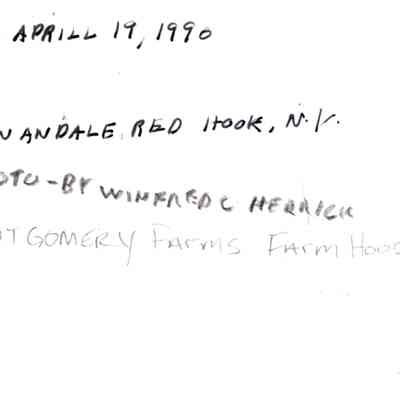 APRILL 19, 1990
NANDALE RED HOOK, N.Y.
OTO-BY WINFRED C HERRICK
TGOMERY FARMS FARM HOUS